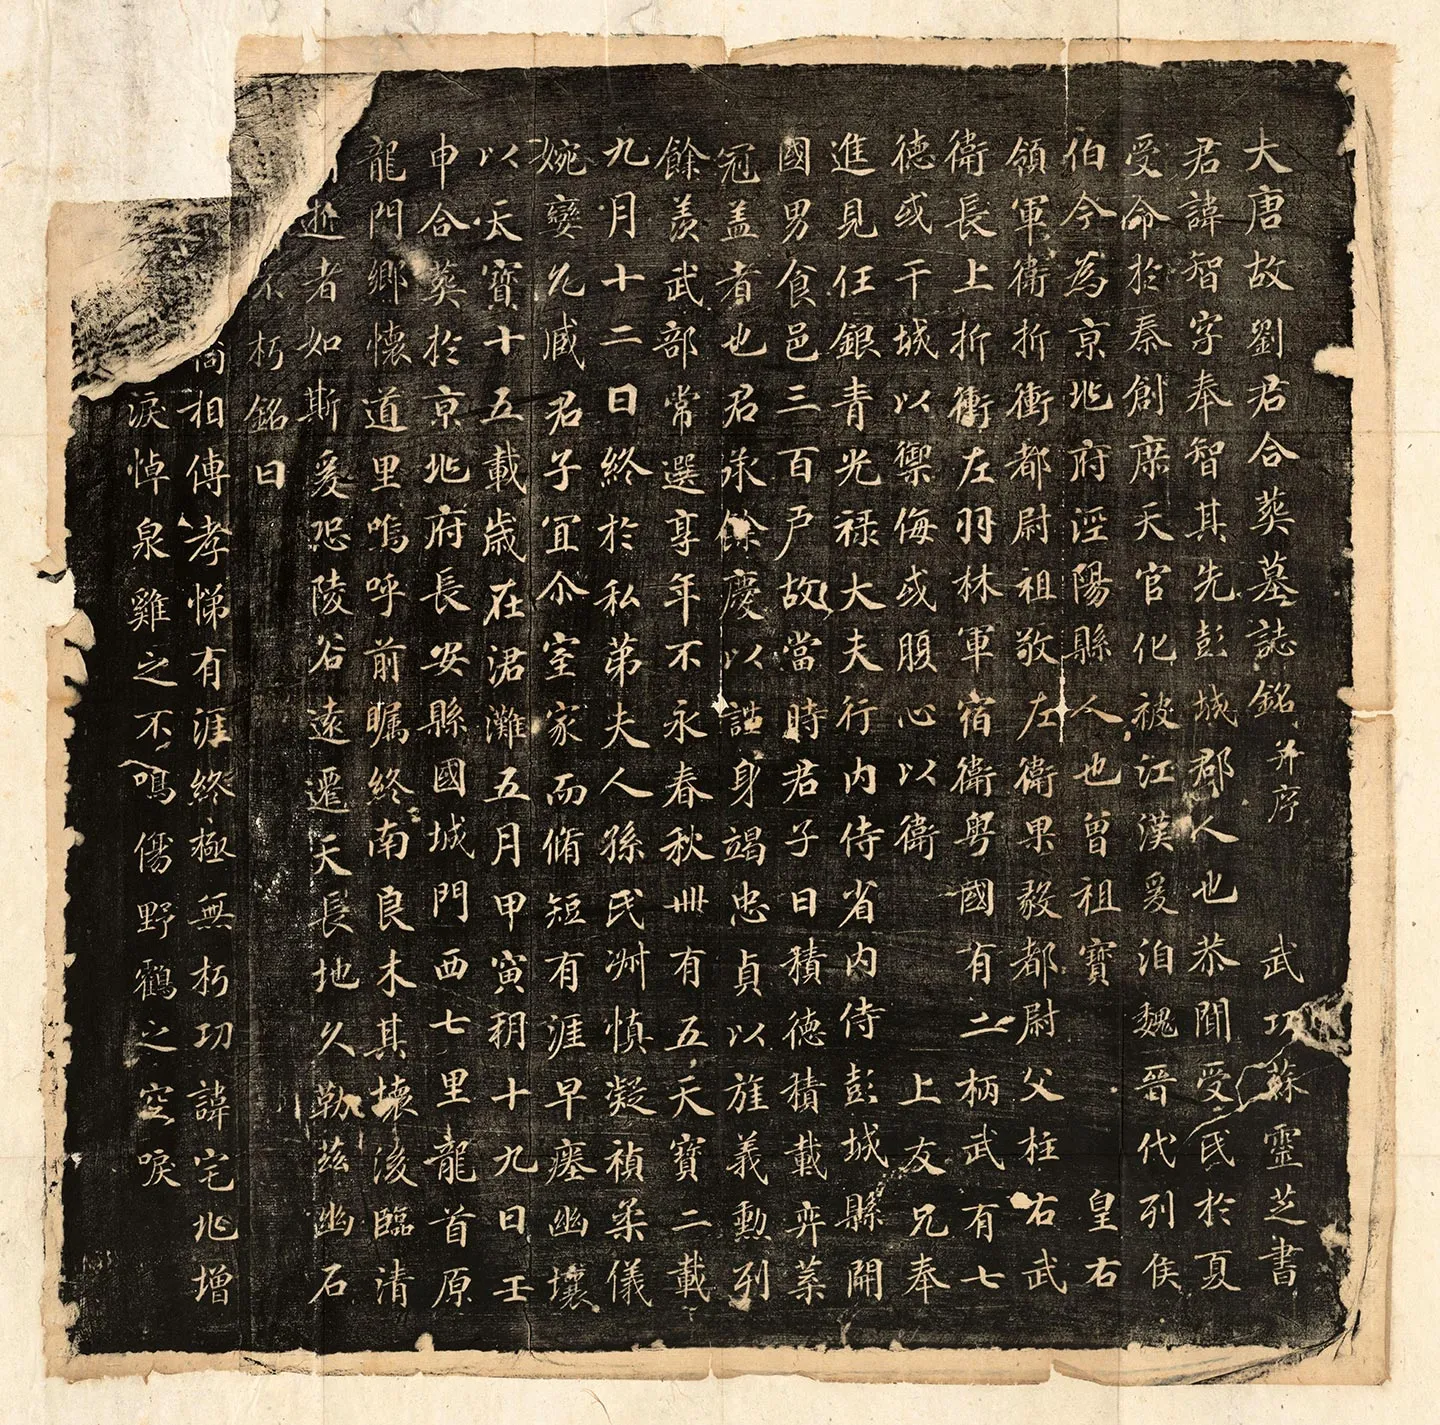 大唐故劉君合葬墓誌銘并序 武功蘇靈芝書
君諱智字奉智其先彭城郡人也恭聞受氏於夏
受命於秦創庶天官化被江漢爰洎魏晉代列侯
伯今為京兆府涇陽縣人也曾祖寶 皇右
領軍衛折衝都尉祖敬左衛果毅都尉父柱右武
衛長上折衝左羽林軍宿衛粤國有二柄武有七
德或干城以禦侮或腹心以衛 上友兄奉
進見任銀青光禄大夫行內侍省內侍彭城縣開
國男食邑三百戶故當時君子曰積德積載弈葉
冠盖者也君承餘慶以謹身竭忠貞以旌義勳列
餘羨武部常選享年不永春秋卌有五天寶二載
九月十二日終於私第夫人孫氏淑慎凝禎柔儀
婉孌允臧君子宜尒室家而脩短有涯早瘞幽壤
以天寶十五載歲在涒灘五月甲寅朔十九日壬
申合葬於京兆府長安縣國城門西七里龍首原
龍門鄉懷道里嗚呼前矚終南良木其壞後臨清
逝者如斯爰恐陵谷遠遷天長地久勒茲幽石
不朽銘曰
相傳孝悌有涯終極無朽功諱宅兆增
淚悼泉雞之不鳴傷野鸖之空唳